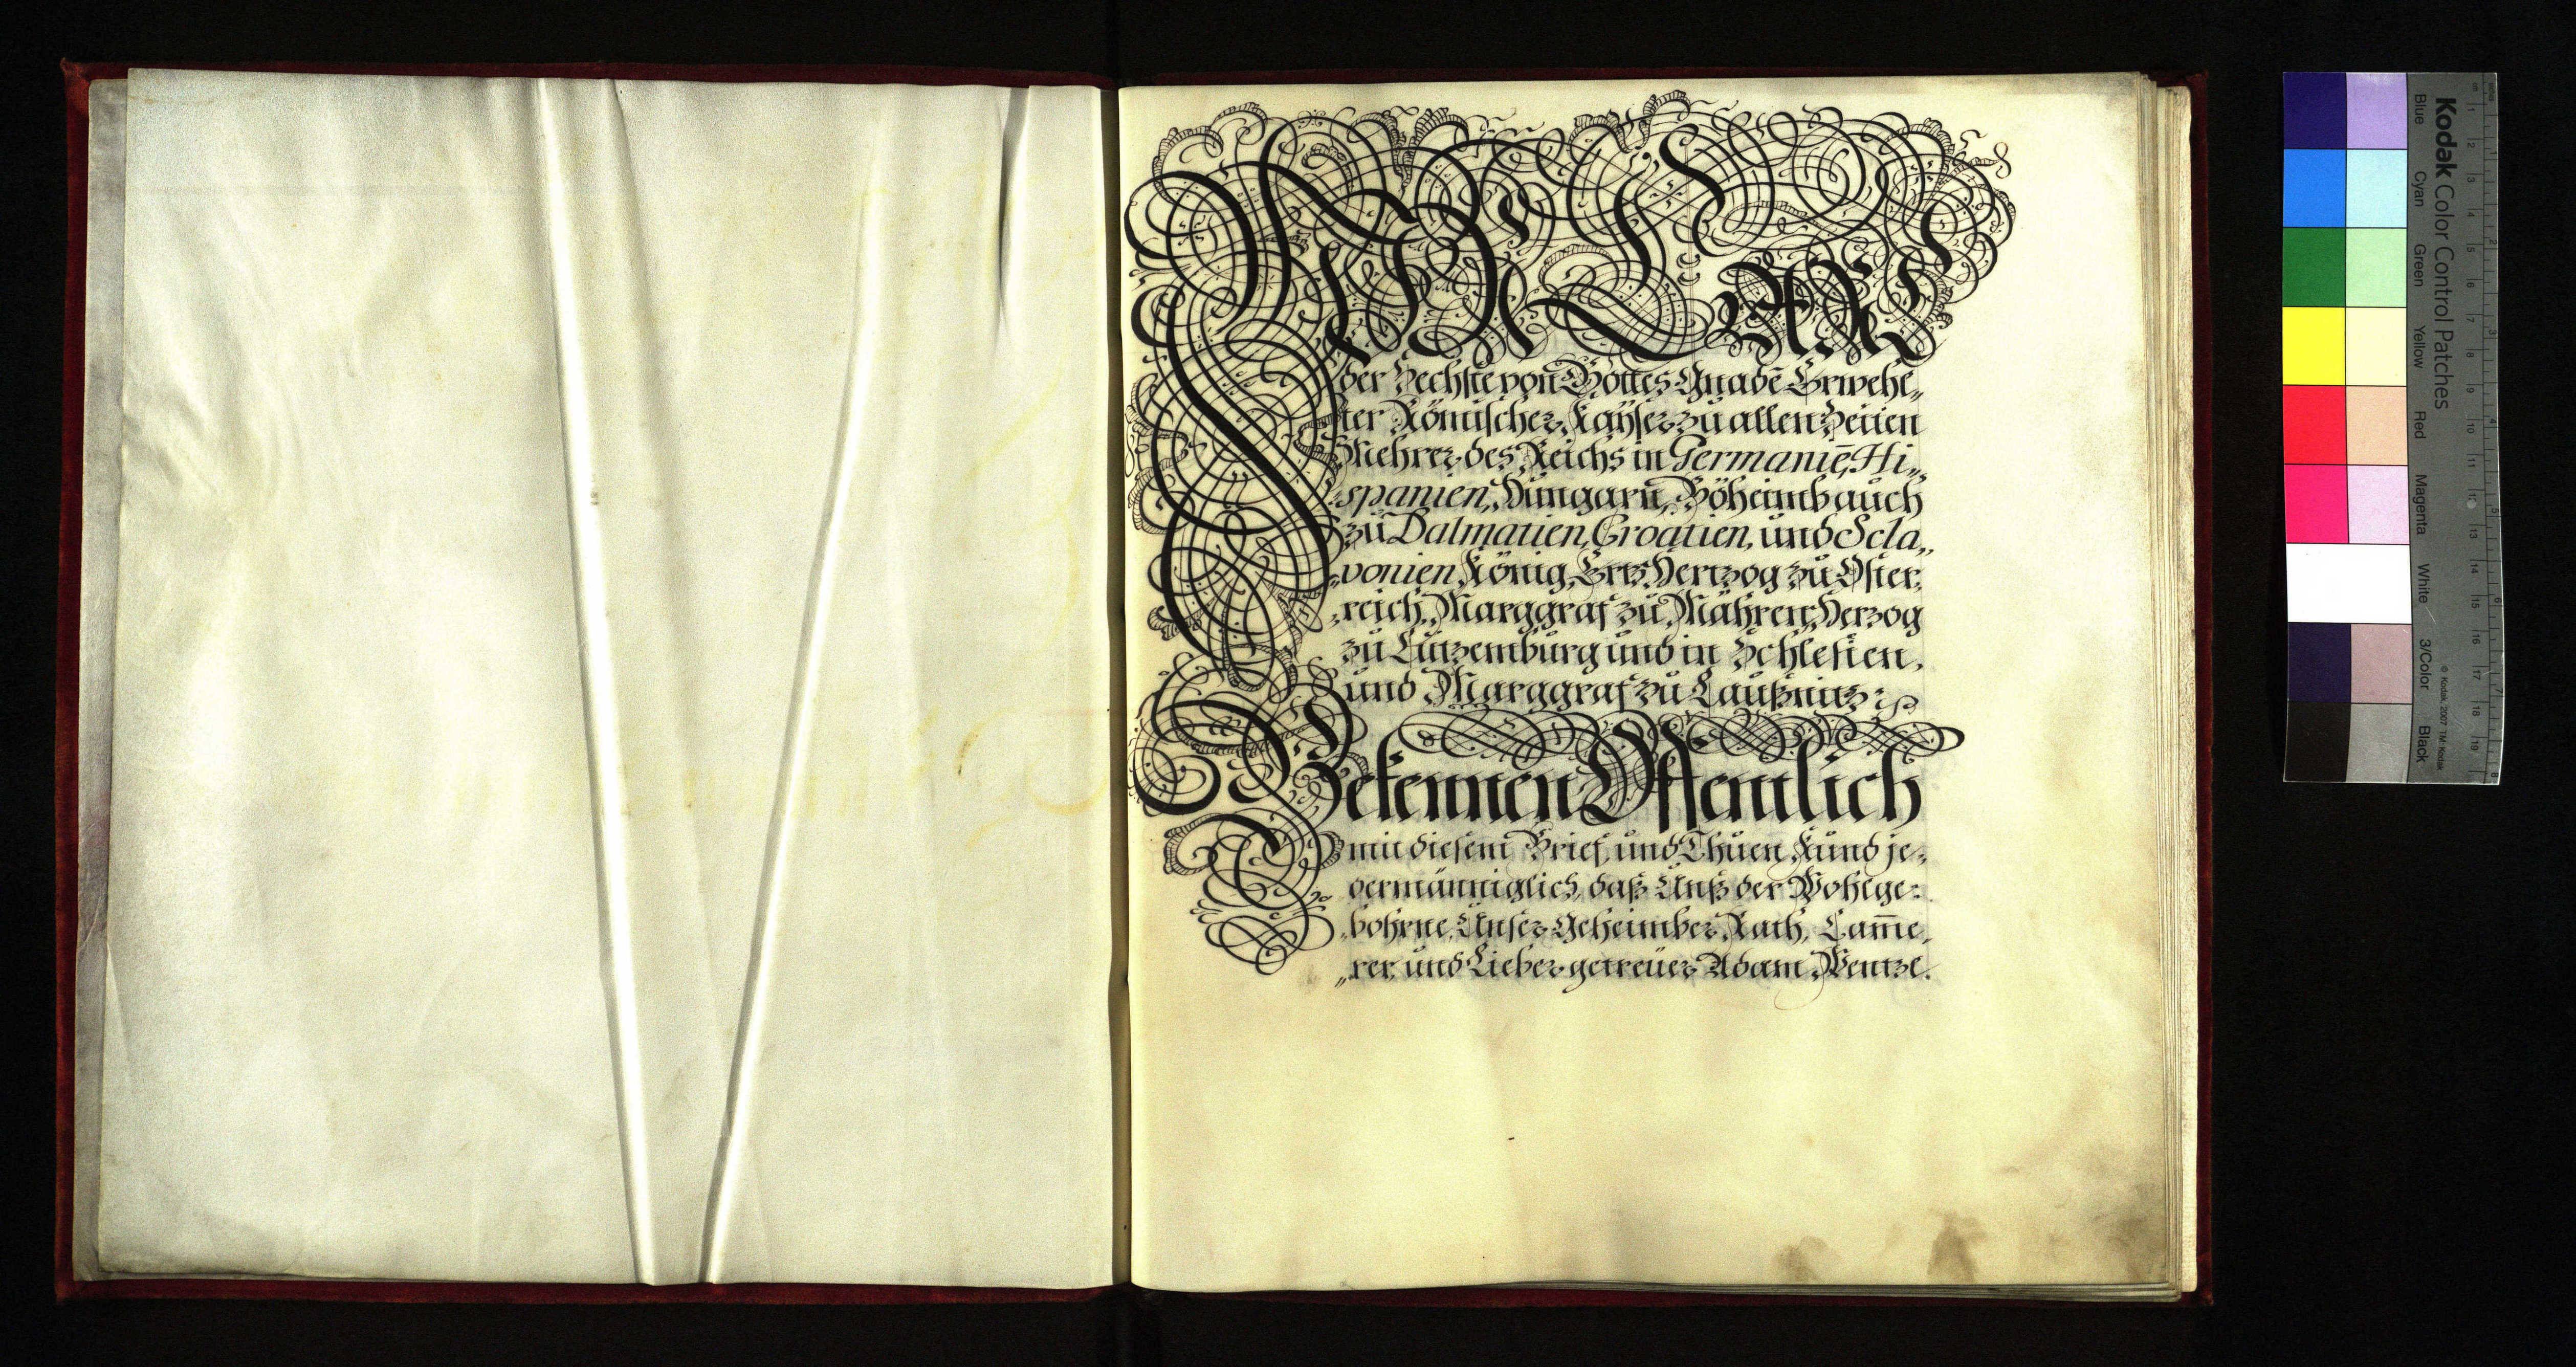 WIR CARL
der Sechste von Gottes Gnadē Erwehl„
ter Römischer Kaÿser zu allen Zeiten
Mehrer des Reichs in Germaniē, Hi„
„spanien, Hungarn, Böheimb auch
zu Dalmatien, Croatien, und Scla„
„vonien König, Ertz Hertzog zu Öster„
„reich, Marggraf zu Mähren, Herzog
zu Lützemburg und in Schlesien,
und Marggraf zu Laußnitz:
Bekennen Öffentlich
mit diesem Brief, und Thuen Kund je„
dermänniglich, daß Unß der Wohlge„
„bohrne, Unser Geheimber Rath, Cam̄e„
„rer, und Lieber getreuer Adam Wentzl
Kodak Color Control Patches
Blue Cyan Green Yellow Red Magenta White 3/Color Black
© Kodak, 2007 TM: Kodak